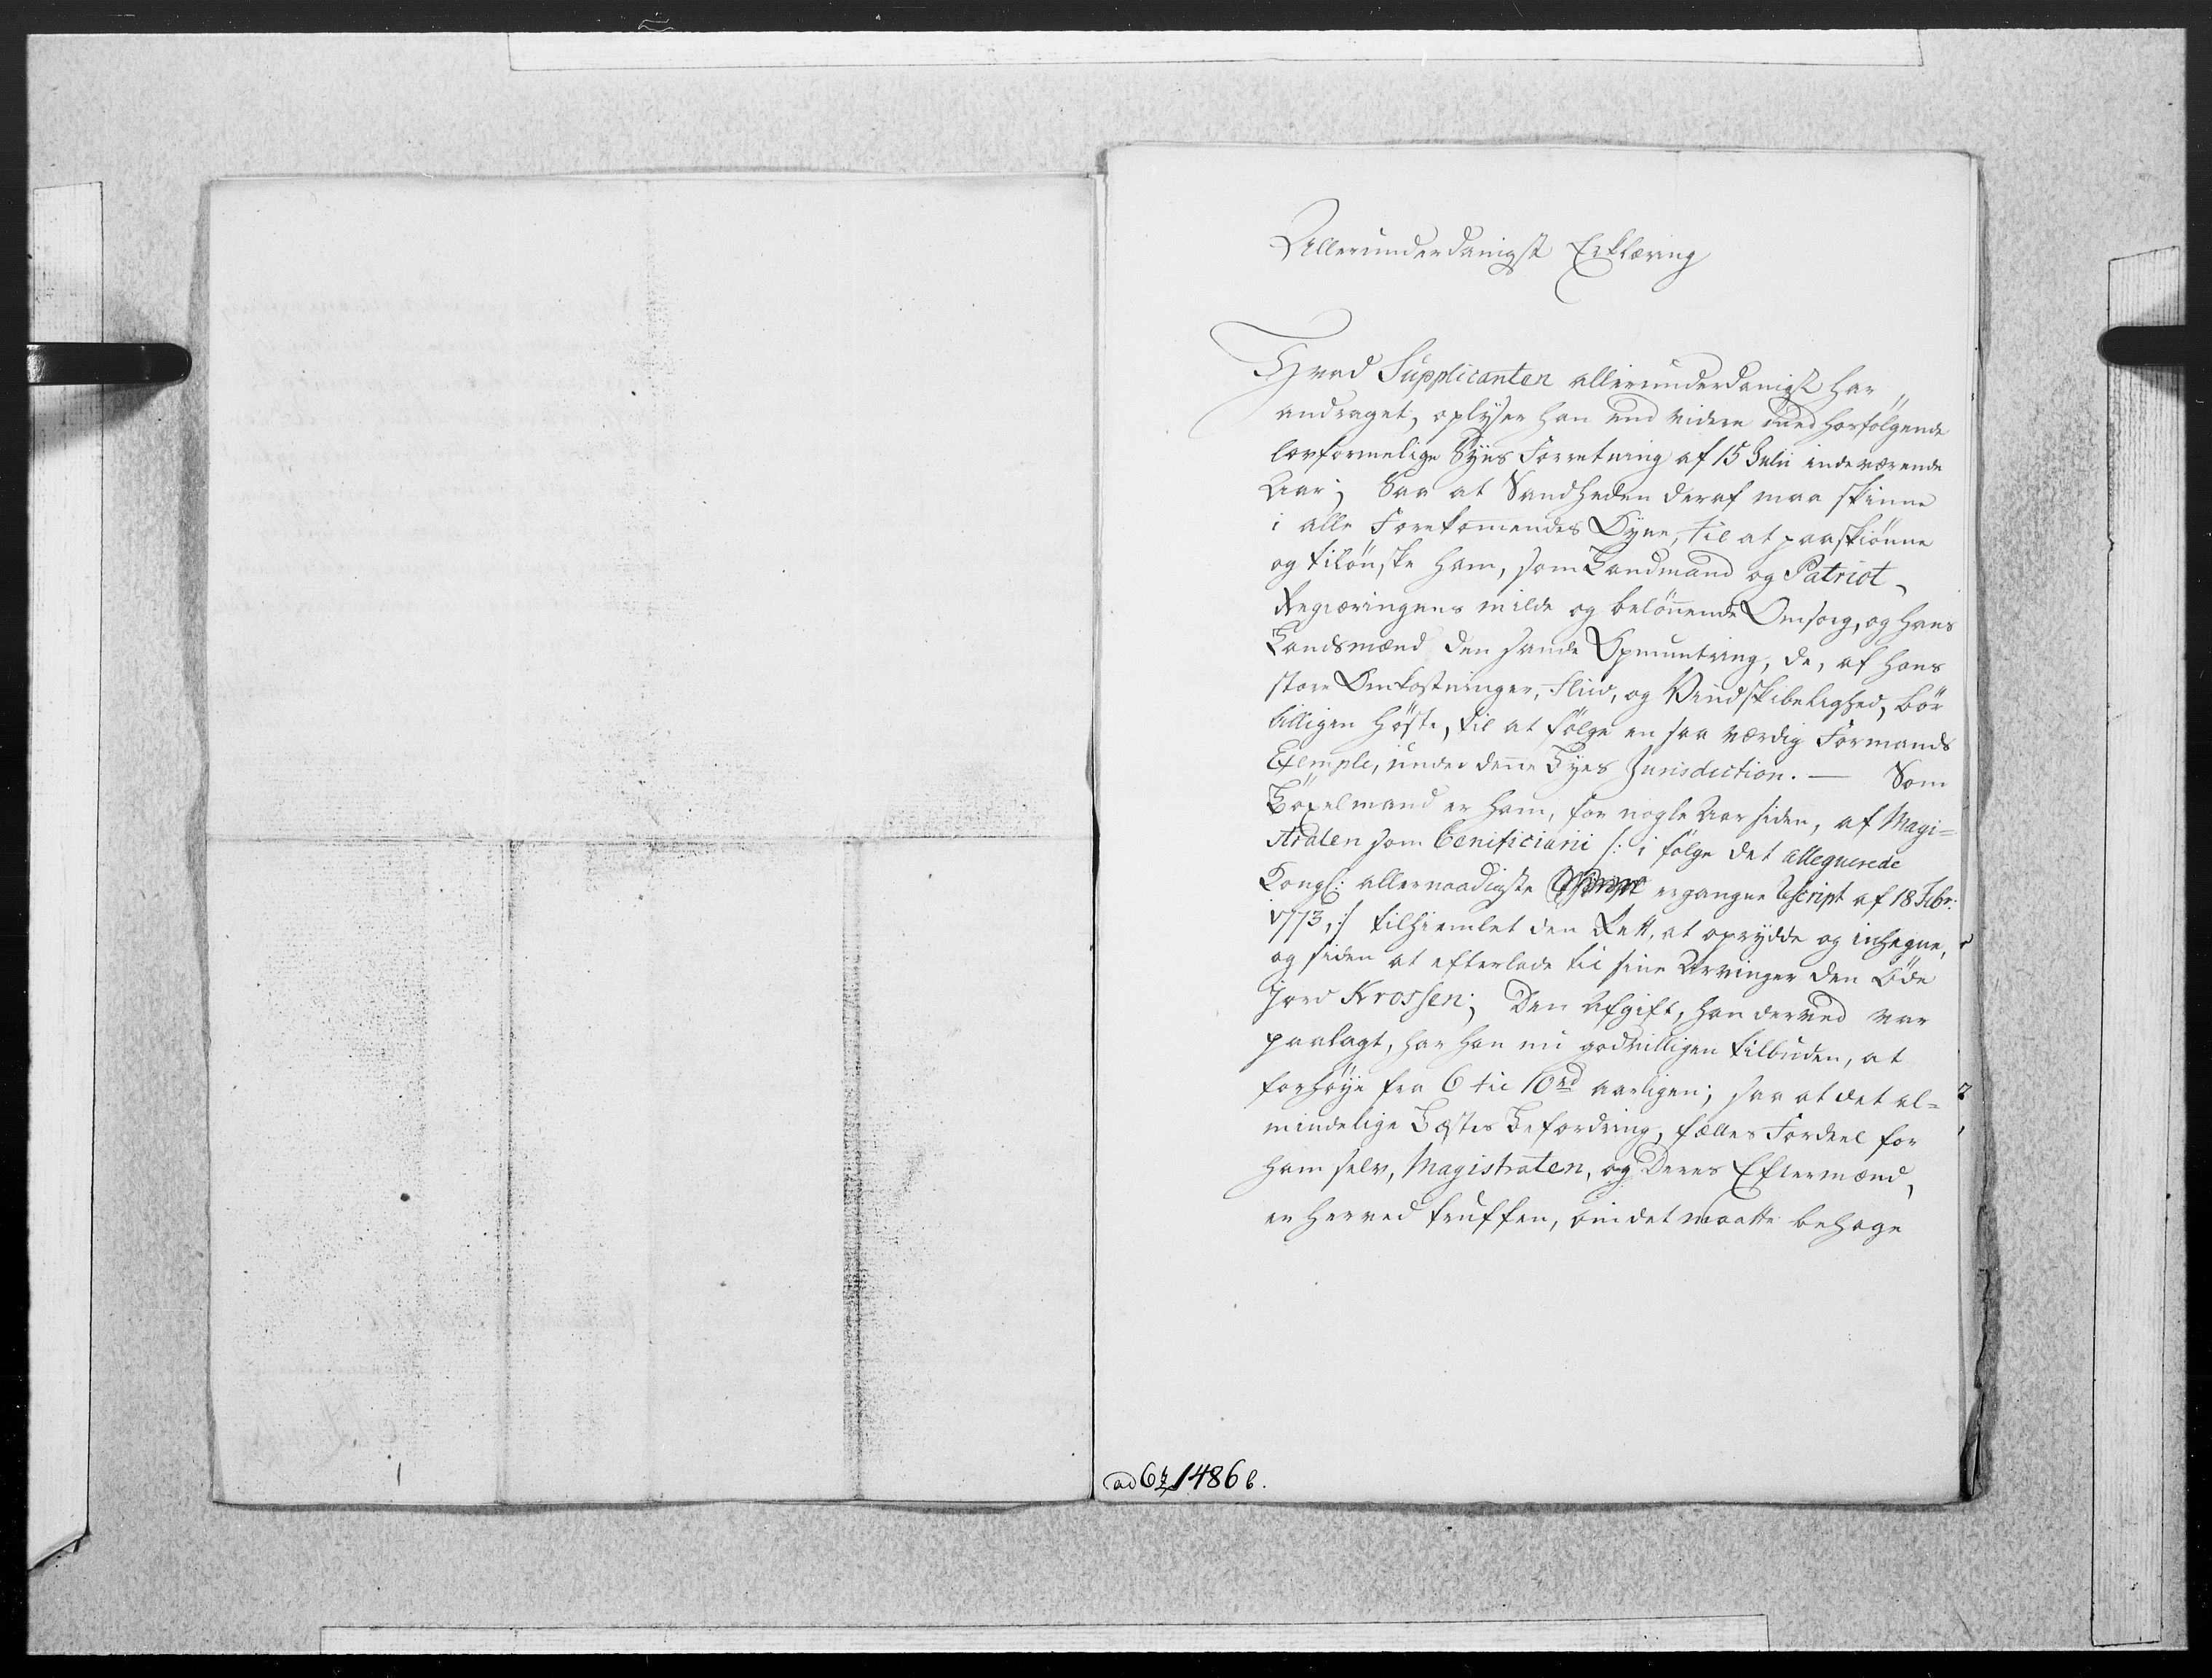 Allerunderdanigst Erklæring
Hvad Supplicanten allerunderdanigst har
andraget, oplyser han end videre med hosfølgende
lovformelige Syns Forretning af 15 Julii indeværende
Aar; Saa at Sandheden deraf maa skinne
i alle Forekommendes Øyne, til at paaskiønne
og tilønske ham, som Landmand og Patriot,
Regieringens milde og belønnende Omsorg, og hans
Landsmænd den sande Opmuntring, de, af hans
store Omkostninger, Fliid, og Vindskibelighed, bör
billigen høste, til at følge en saa værdig Formands
Exemple, under denne Byes Jurisdiction. — Som
Böxelmand er ham, for nogle Aar siden, af Magi=
straten som benificiarii /: i følge det alleguerede
Kongl: allernaadigste ergangne Rescript af 18 Febr:
1773, :/ tilhiemlet den Rett, at oprydde og indhegne,
og siden at efterlade til sine Arvinger den Øde
Jord Krossen; Den Afgift, han derved var
paalagt, har han nu godvilligen tilbuden, at
forhøye fra 6 til 10 rd aarligen; saa at det al=
mindelige Bestes Befordring, fælles Fordeel for
ham selv, Magistraten, og deres Eftermænd,
er herved truffen, om det maatte behage
ad 1486 b.